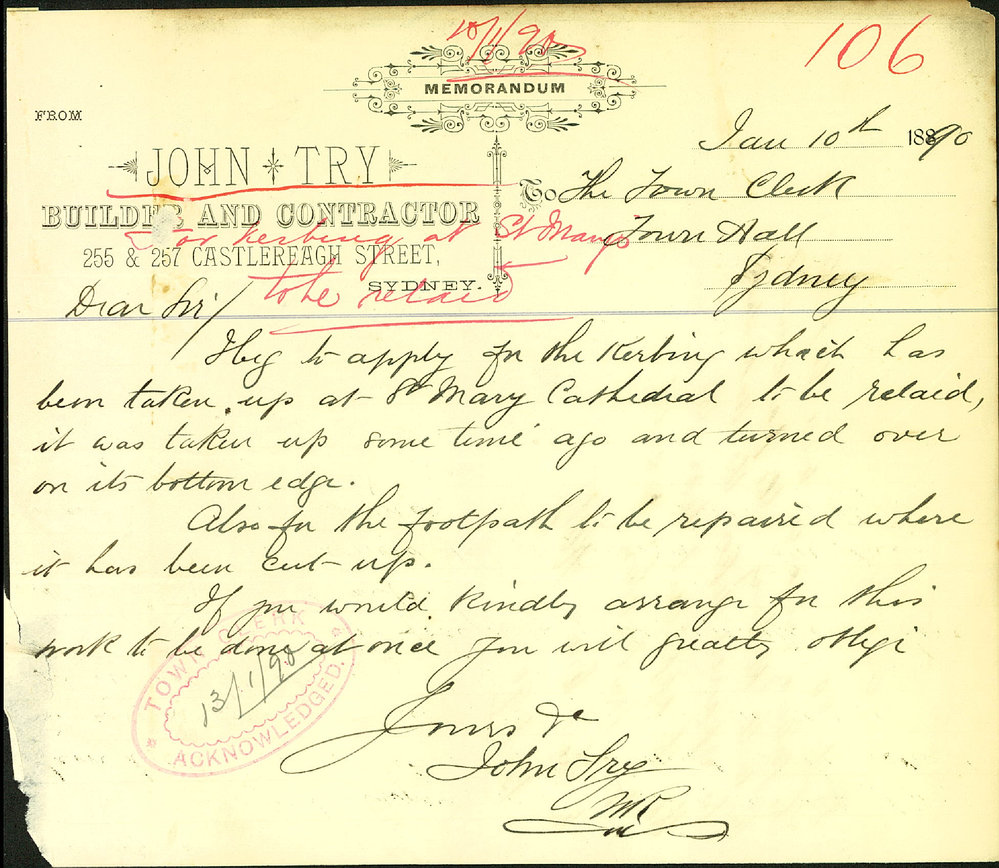 10/1/90
106
MEMORANDUM
FROM
Jan 10th 1890
JOHN TRY
To The Town Clerk
BUILDER AND CONTRACTOR
Town Hall
For Kerbing at St Marys
255 & 257 CASTLEREAGH STREET,
SYDNEY.
Sydney
to be relaid
Dear Sir/
I beg to apply for the Kerbing which has
been taken up at St Mary Cathedral to be relaid,
it was taken up some time ago and turned over
on its bottom edge.
Also for the footpath to be repaired where
it has been cut up.
If you would kindly arrange for this
work to be done at once you will greatly oblige
TOWN CLERK
13/1/90
ACKNOWLEDGED.
Yours &c
John Try